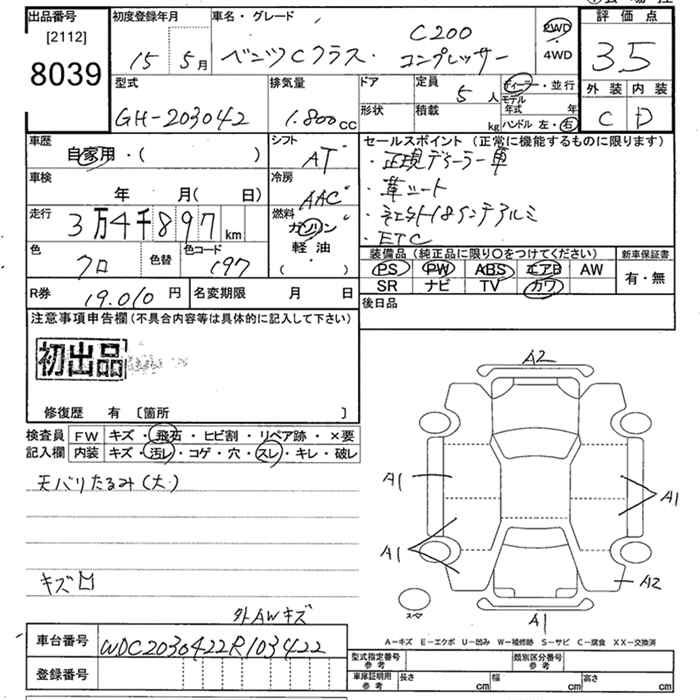 出品番号 初度登録年月 車名・グレード 評価点
[2112] C200 2WD
8039 15 5月 ベンツCクラス・コンプレッサー ・4WD 3.5
型式 排気量 ドア 定員 5人 ディーラー・並行 外装 内装
GH-203042 1.800cc 形状 積載 kg モデル年式 年 C D
ハンドル 左・右
車歴 シフト セールスポイント (正常に機能するものに限ります)
自家用・( ) AT ・正規ディーラー車
車検 冷房 ・革シート
年 月( 日) AAC ・社外18インチアルミ
走行 燃料 ・ETC
3万4千897km ガソリン
軽油・( )
色 色替 色コード 装備品 (純正品に限り○をつけてください) 新車保証書
クロ 197 PS PW ABS エアB AW 有・無
SR ナビ TV カワ
R券 19.010円 名変期限 月 日 後日品
注意事項申告欄 (不具合内容等は具体的に記入して下さい)
初出品
修復歴 有 〔箇所 〕
検査員 FW キズ・飛石・ヒビ割・リペア跡・×要
記入欄 内装 キズ・汚レ・コゲ・穴・スレ・キレ・破レ
天バリたるみ(大)
キズ凹
外AWキズ
A2
A1
A1
A1
A2
スペア
A1
A-キズ E-エクボ U-凹み W-補修跡 S-サビ C-腐食 XX-交換済
車台番号 WDC2030422R103422
登録番号
型式指定番号 参考 類別区分番号 参考
車庫証明用 参考 長さ cm 幅 cm 高さ cm